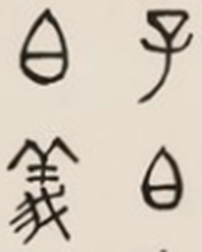 子白
白義